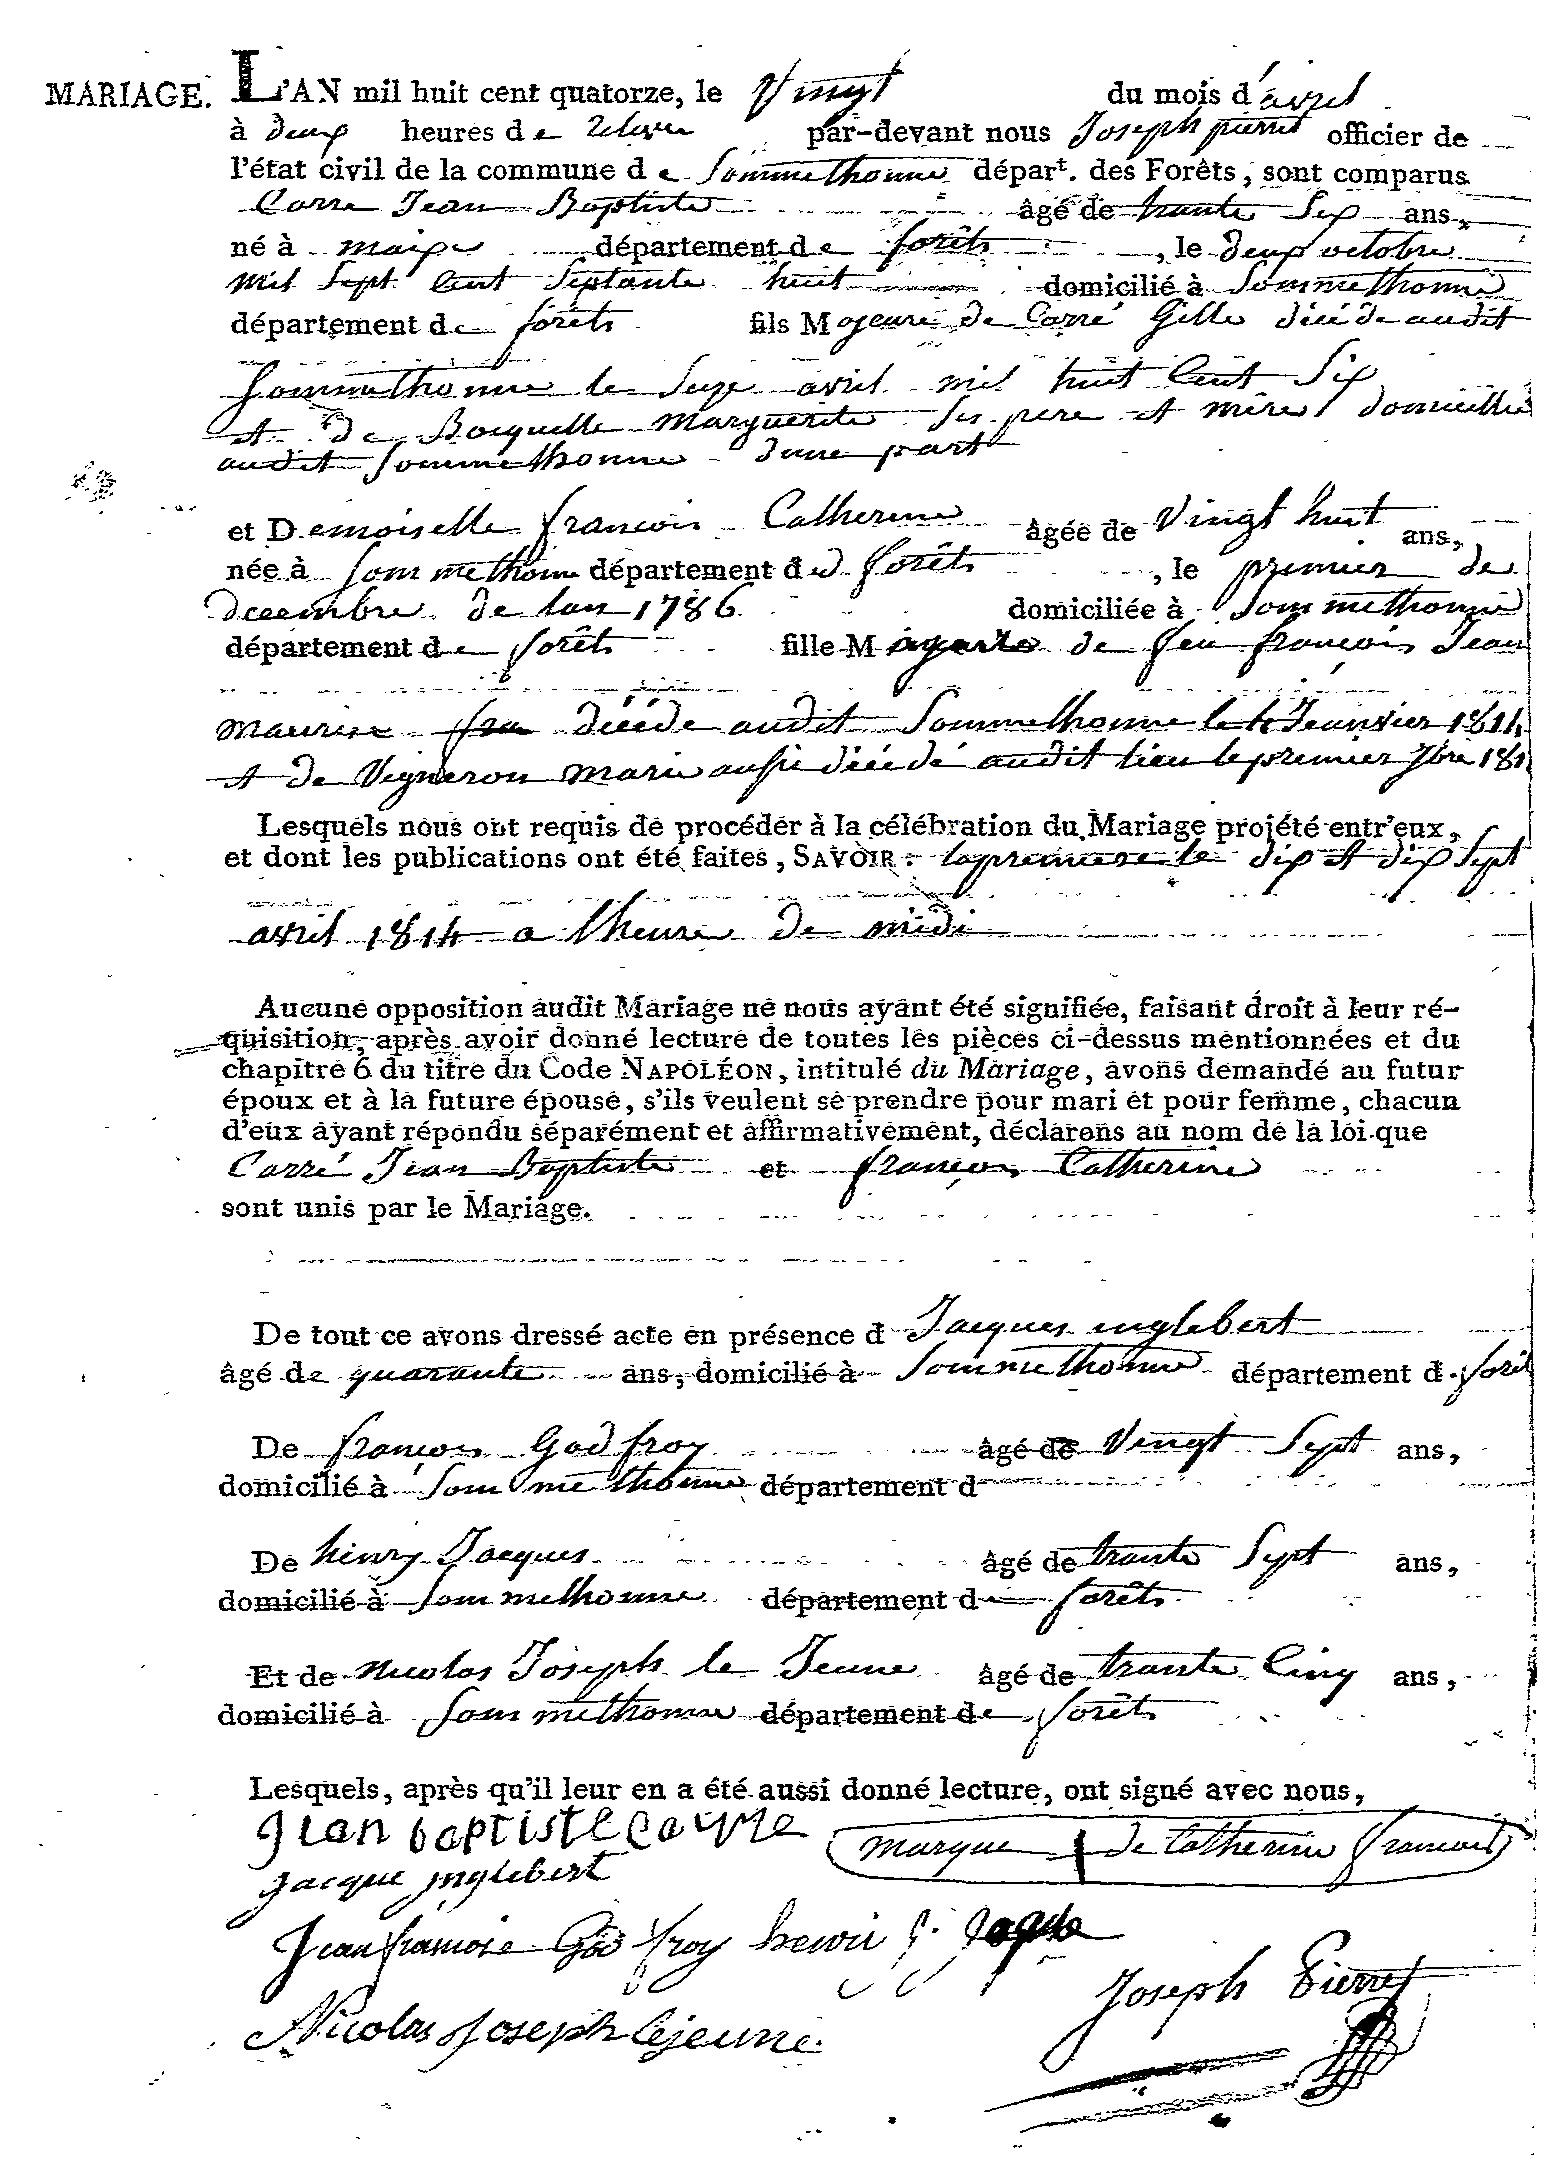 MARIAGE. L'AN mil huit cent quatorze, le Vingt du mois d'avril
à deux heures de relevée par-devant nous Joseph pierret officier de
l'état civil de la commune de Sommethonne départ. des Forêts, sont comparus
Carre Jean Baptiste âgé de trante Six ans,
né à maixe département de forêts, le deux octobre
mil Sept Cent Septante huit domicilié à Sommethonne
département de forêts fils Majeure de Carré Gille décéde audit
Sommethonne le Seize avril mil huit Cent Six
et de Bocquelle Marguerite Ses pere et mére domicilié
audit Sommethonne d'une part
et Demoiselle francois Catherine âgée de Vingt huit ans,
née à Sommethonne département des forêts, le premier de
decembre de lan 1786 domiciliée à Sommethonne
département de forêts fille Mageure de feu françois Jean
maurice décéde audit Sommethonne le 4 Jeanvier 1814
et de Vigneron marie aussi décédé audit lieu le premier 181
Lesquels nous ont requis de procéder à la célébration du Mariage projété entr'eux,
et dont les publications ont été faites, SAVOIR: la premiere le dix et dix Sept
avril 1814 a lheure de midi
Aucune opposition audit Mariage ne nous ayant été signifiée, faisant droit à leur ré-
quisition, après avoir donné lecture de toutes les pièces ci-dessus mentionnées et du
chapitre 6 du titre du Code NAPOLÉON, intitulé du Mariage, avons demandé au futur
époux et à la future épouse, s'ils veulent se prendre pour mari et pour femme, chacun
d'eux ayant répondu séparément et affirmativement, déclarons au nom de la loi que
Carré Jean Baptiste et françois Catherine
sont unis par le Mariage.
De tout ce avons dressé acte en présence d Jacques inglebert
âgé de quarante ans, domicilié à Sommethonne département d forêt
De françois Godfroy âgé de Vingt Sept ans,
domicilié à Sommethonne département d
De henry Jacques âgé de trante Sept ans,
domicilié à Sommethonne département de forêts
Et de Nicolas Joseph le Jeune âgé de trante Cinq ans,
domicilié à Sommethonne département de forêts
Lesquels, après qu'il leur en a été aussi donné lecture, ont signé avec nous,
Jean baptiste carre marque de Catherine francois
Jacque inglebert
Jean francois Godfroy henri j. jaque
Joseph Pierret
Nicolas Joseph lejeune